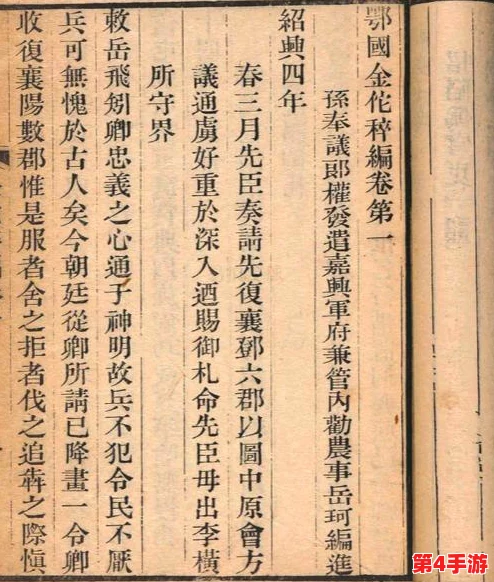 鄂國金佗稡編卷第一
孫奉議郎權發遣嘉興軍府兼管内勸農事岳珂編進
紹興四年
春三月先臣奏請先復襄鄧六郡以圖中原會方
議通虜好重於深入迺賜御札命先臣毋出李橫
所守界
敕岳飛矧卿忠義之心通于神明故兵不犯令民不厭
兵可無愧於古人矣今朝廷從卿所請已降畫一令卿
收復襄陽數郡惟是服者舍之拒者伐之追奔之際愼
第4手游